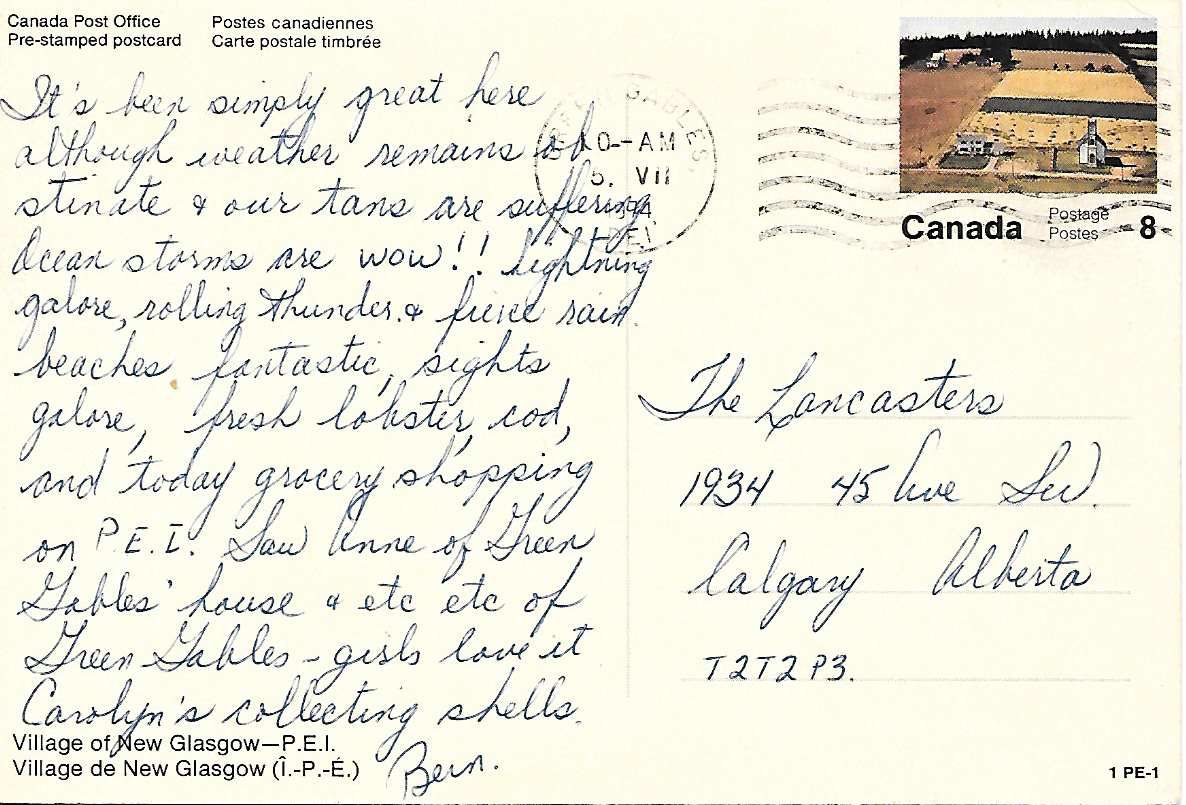 Canada Post Office
Pre-stamped postcard
Postes canadiennes
Carte postale timbrée
It's been simply great here
although weather remains ob
stinate & our tans are suffering
Ocean storms are wow!! Lightning
galore, rolling thunder & fierce rain.
beaches fantastic, sights
galore, fresh lobster, cod,
and today grocery shopping
on P.E.I. Saw Anne of Green
Gables' house & etc etc of
Green Gables - girls love it
Carolyn's collecting shells.
Bern.
Village of New Glasgow—P.E.I.
Village de New Glasgow (Î.-P.-É.)
GABLES
10-AM
5. VII
PEI
Canada
Postage
Postes
8
The Lancasters
1934 45 Ave SW.
Calgary Alberta
T2T2P3.
1 PE-1